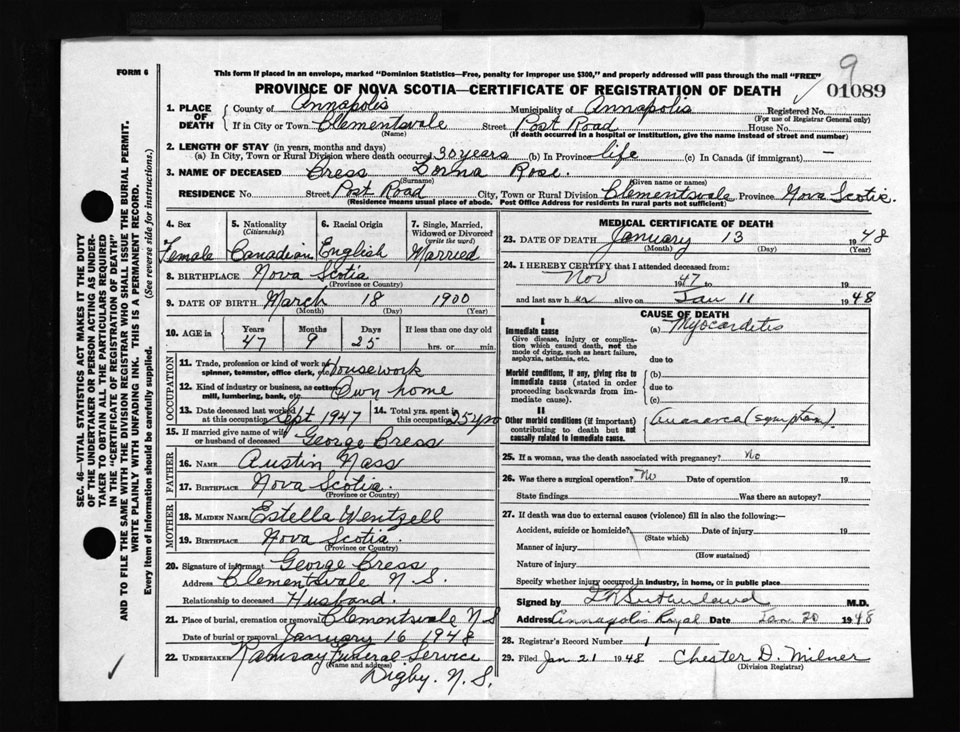 9
FORM 6
This form if placed in an envelope, marked "Dominion Statistics—Free, penalty for improper use $300," and properly addressed will pass through the mail "FREE"
PROVINCE OF NOVA SCOTIA—CERTIFICATE OF REGISTRATION OF DEATH
01089
1. PLACE OF DEATH County of Annapolis Municipality of Annapolis Registered No.
(For use of Registrar General only)
If in City or Town Clementsvale Street Post Road House No.
(Name) (If death occurred in a hospital or institution, give the name instead of street and number)
2. LENGTH OF STAY (in years, months and days)
(a) In City, Town or Rural Division where death occurred 30 years (b) In Province life (c) In Canada (if immigrant) —
3. NAME OF DECEASED Cress Lorna Rose.
(Surname) (Given name or names)
RESIDENCE No. Street Post Road City, Town or Rural Division Clementsvale Province Nova Scotia.
(Residence means usual place of abode. Post Office Address for residents in rural parts not sufficient)
4. Sex 5. Nationality (Citizenship) 6. Racial Origin 7. Single, Married, Widowed or Divorced (write the word)
Female Canadian English Married
8. BIRTHPLACE Nova Scotia
(Province or Country)
9. DATE OF BIRTH March 18 1900
(Month) (Day) (Year)
10. AGE in Years Months Days If less than one day old
47 9 25 hrs. or min.
OCCUPATION
11. Trade, profession or kind of work as spinner, teamster, office clerk, etc. Housework
12. Kind of industry or business, as cotton mill, lumbering, bank, etc. Own home
13. Date deceased last worked at this occupation Sept 1947 14. Total yrs. spent in this occupation 25 yrs
15. If married give name of wife or husband of deceased George Cress
FATHER
16. NAME Austin Nass
17. BIRTHPLACE Nova Scotia.
(Province or Country)
MOTHER
18. MAIDEN NAME Estella Wentzell
19. BIRTHPLACE Nova Scotia.
(Province or Country)
20. Signature of informant George Cress
Address Clementsvale N.S.
Relationship to deceased Husband.
21. Place of burial, cremation or removal Clementsvale N.S
Date of burial or removal January 16 1948
22. UNDERTAKER Ramsay Funeral Service
(Name and address)
Digby. N.S.
MEDICAL CERTIFICATE OF DEATH
23. DATE OF DEATH January 13 1948
(Month) (Day) (Year)
24. I HEREBY CERTIFY that I attended deceased from:
Nov 1947 to 19
and last saw her alive on Jan 11 1948
CAUSE OF DEATH
I
Immediate cause (a) Myocarditis
Give disease, injury or complication which caused death, not the mode of dying, such as heart failure, asphyxia, asthenia, etc.
due to
Morbid conditions, if any, giving rise to immediate cause (stated in order proceeding backwards from immediate cause).
(b)
due to
(c)
II
Other morbid conditions (if important) contributing to death but not causally related to immediate cause.
Anasarca (symptom)
25. If a woman, was the death associated with pregnancy? No
26. Was there a surgical operation? No Date of operation 19
State findings Was there an autopsy?
27. If death was due to external causes (violence) fill in also the following:—
Accident, suicide or homicide? Date of injury 19
(State which)
Manner of injury
(How sustained)
Nature of injury
Specify whether injury occurred in industry, in home, or in public place
Signed by Sutherland M.D.
Address Annapolis Royal Date Jan 20 1948
28. Registrar's Record Number 1
29. Filed Jan 21 1948 Chester D. Milner
(Division Registrar)
SEC. 46—VITAL STATISTICS ACT MAKES IT THE DUTY
OF THE UNDERTAKER OR PERSON ACTING AS UNDER-
TAKER TO OBTAIN ALL THE PARTICULARS REQUIRED
IN THE "CERTIFICATE OF REGISTRATION OF DEATH"
AND TO FILE THE SAME WITH THE DIVISION REGISTRAR WHO SHALL ISSUE THE BURIAL PERMIT.
WRITE PLAINLY WITH UNFADING INK. THIS IS A PERMANENT RECORD.
Every item of information should be carefully supplied. (See reverse side for instructions.)